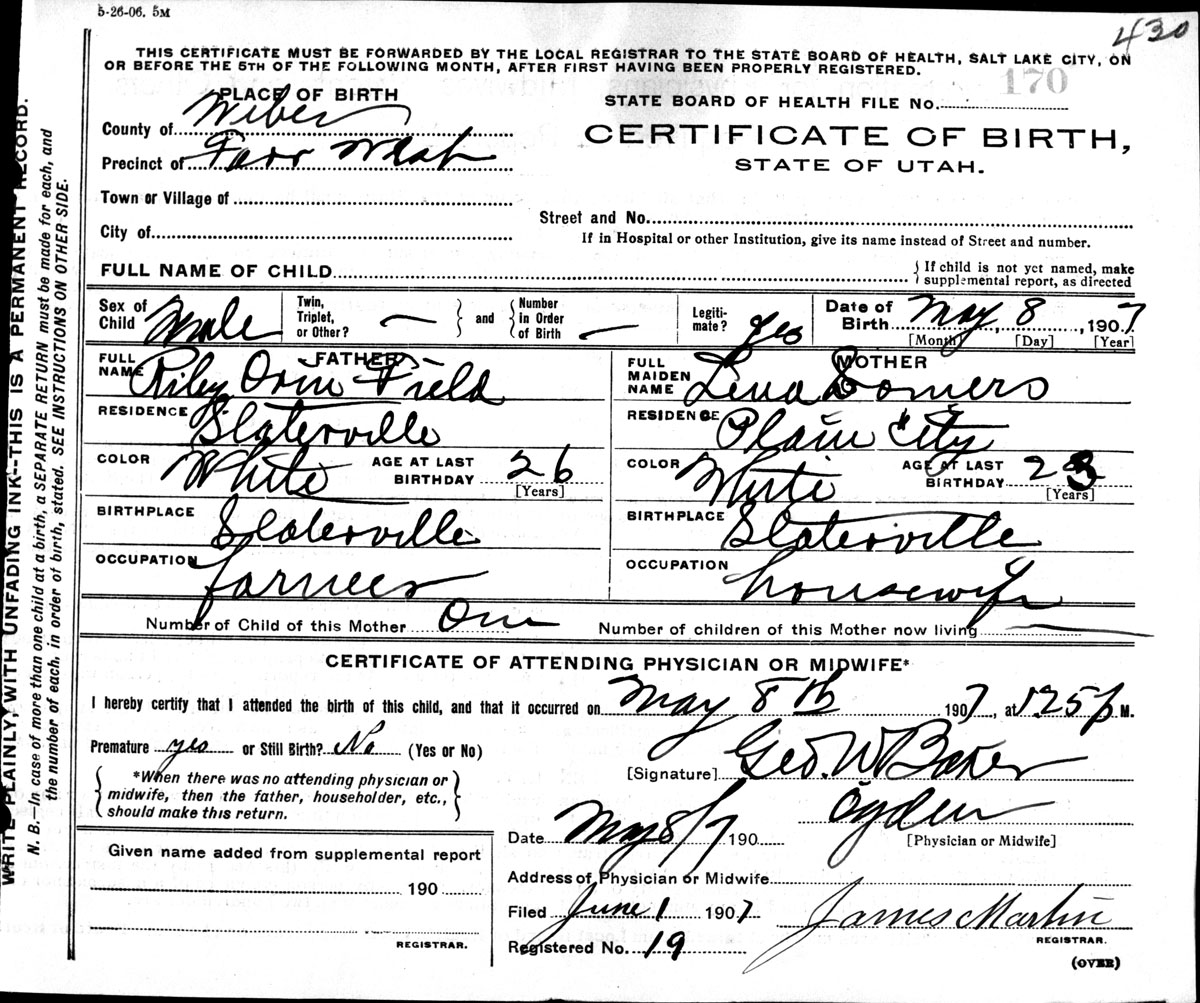 5-26-06. 5M
430
THIS CERTIFICATE MUST BE FORWARDED BY THE LOCAL REGISTRAR TO THE STATE BOARD OF HEALTH, SALT LAKE CITY, ON
OR BEFORE THE 5TH OF THE FOLLOWING MONTH, AFTER FIRST HAVING BEEN PROPERLY REGISTERED.
170
PLACE OF BIRTH
STATE BOARD OF HEALTH FILE No.
County of Weber
CERTIFICATE OF BIRTH,
Precinct of Farr West
STATE OF UTAH.
Town or Village of
Street and No.
City of
If in Hospital or other Institution, give its name instead of Street and number.
FULL NAME OF CHILD { If child is not yet named, make
supplemental report, as directed
Sex of Child Male Twin, Triplet, or Other? — } and { Number in Order of Birth — Legiti-mate? Yes Date of Birth May 8, 1907
[Month] [Day] [Year]
FATHER MOTHER
FULL NAME Riley Orin Field FULL MAIDEN NAME Lena Somers
RESIDENCE Slaterville RESIDENCE Plain City
COLOR White AGE AT LAST BIRTHDAY 26 COLOR White AGE AT LAST BIRTHDAY 23
[Years] [Years]
BIRTHPLACE Slaterville BIRTHPLACE Slaterville
OCCUPATION farmer OCCUPATION housewife
Number of Child of this Mother One Number of children of this Mother now living
CERTIFICATE OF ATTENDING PHYSICIAN OR MIDWIFE*
I hereby certify that I attended the birth of this child, and that it occurred on May 8th 1907, at 125 p M.
Premature yes or Still Birth? No (Yes or No)
[Signature] Geo. W Baker
*When there was no attending physician or
midwife, then the father, householder, etc.,
should make this return.
Ogden
Date May 8/7 190
[Physician or Midwife]
Given name added from supplemental report
Address of Physician or Midwife
190
Filed June 1 1907 James Martin
REGISTRAR.
REGISTRAR.
Registered No. 19
(OVER)
WRITE PLAINLY, WITH UNFADING INK--THIS IS A PERMANENT RECORD.
N. B.—In case of more than one child at a birth, a SEPARATE RETURN must be made for each, and
the number of each, in order of birth, stated. SEE INSTRUCTIONS ON OTHER SIDE.